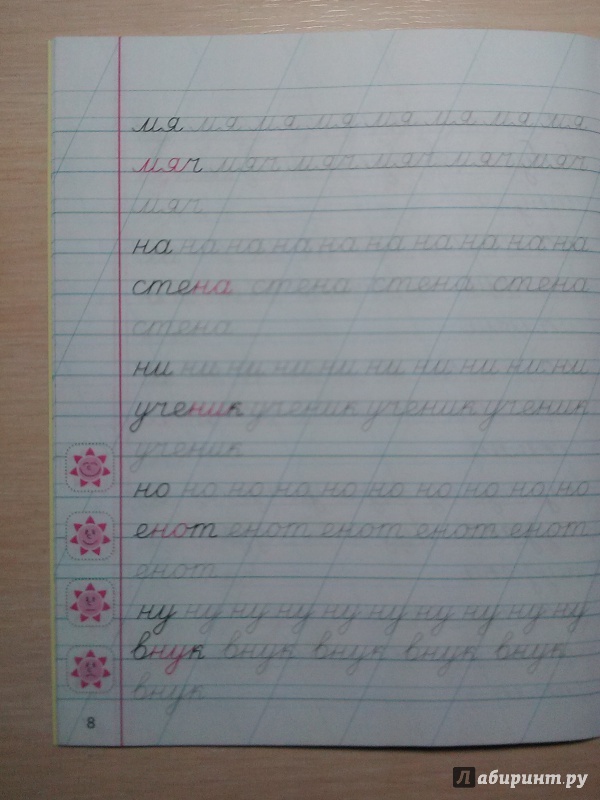 мя мя мя мя мя мя мя мя
мяч мяч мяч мяч мяч мяч
мяч
на на на на на на на на на на
стена стена стена стена
стена
ни ни ни ни ни ни ни ни ни ни
ученик ученик ученик ученик
ученик
но но но но но но но но но но
енот енот енот енот енот
енот
ну ну ну ну ну ну ну ну ну ну
внук внук внук внук внук
внук
8
Лабиринт.ру